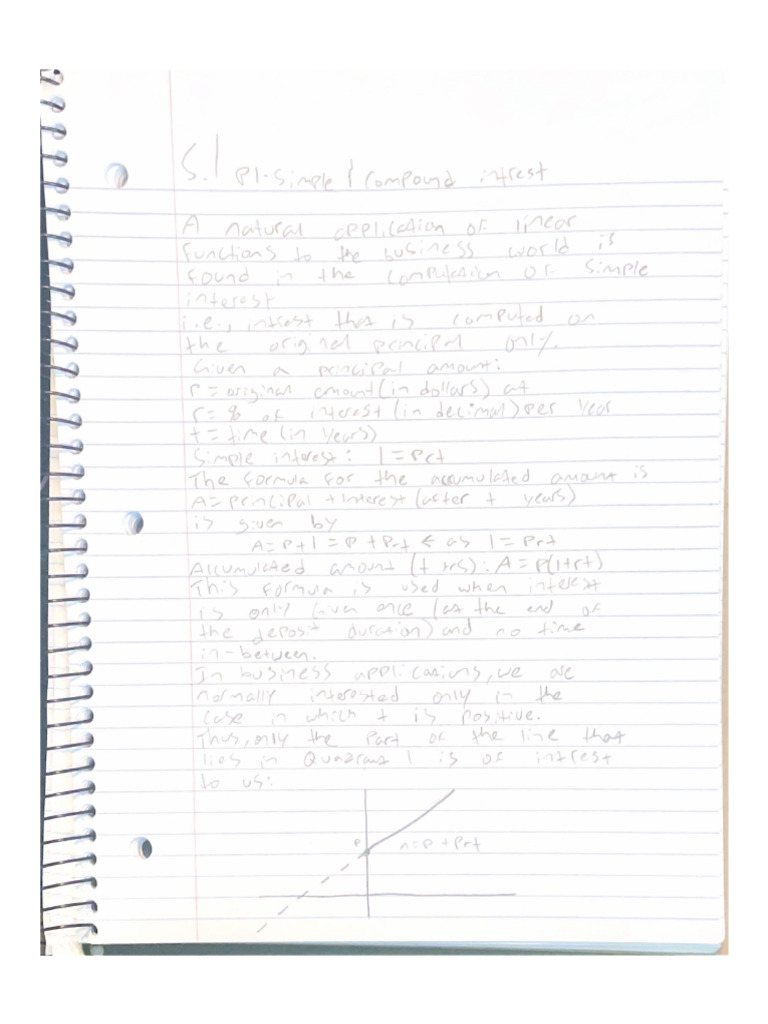 5.1 P1-Simple & Compound intrest
A natural application of linear
Functions to the business world is
found in the computation of simple
interest
i.e., intrest that is computed on
the original principal only.
Given a principal amount:
P = original amount (in dollars) at
r = % of interest (in decimal) per year
t = time (in years)
Simple interest: I = Prt
The formula for the accumulated amount is
A = principal + interest (after t years)
is given by
A = P + I = P + Prt ← as I = Prt
Accumulated amount (t yrs): A = P(1+rt)
This formula is used when interest
is only given once (at the end of
the deposit duration) and no time
in-between.
In business applications, we are
normally interested only in the
case in which t is positive.
Thus, only the part of the line that
lies in Quadrant 1 is of intrest
to us:
P
A = P + Prt